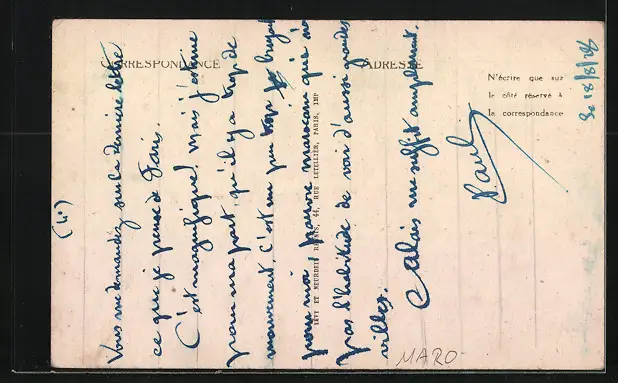 CORRESPONDANCE
ADRESSE
N'écrire que sur
le côté réservé à
la correspondance
LÉVY ET NEURDEIN RÉUNIS, 44, RUE LETELLIER, PARIS, IMP
le 18/8/28
(4°)
Vous me demandez sur la dernière lettre
ce que je pense de Paris.
C'est magnifique! mais j'estime
pour ma part qu'il y a trop de
mouvement. C'est un peu trop bruyant
pour moi, pauvre marocain qui n'a
pas l'habitude de voir d'aussi grandes
villes.
Calais me suffit amplement.
Paul
MARO-